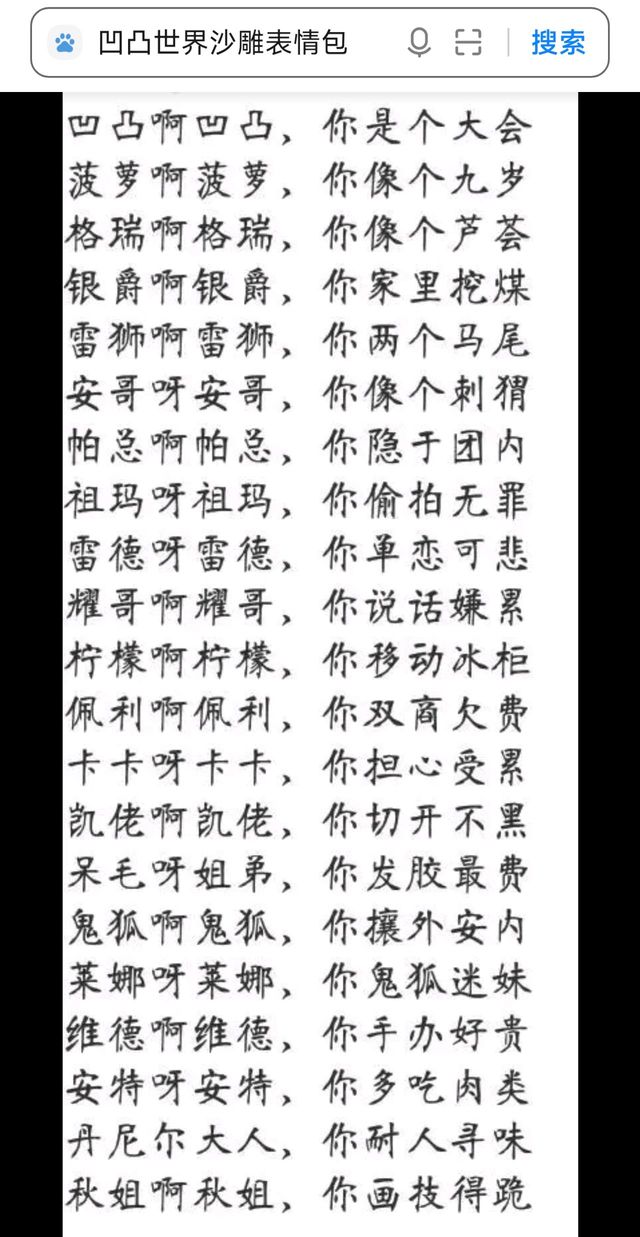 凹凸世界沙雕表情包 搜索
凹凸啊凹凸，你是个大会
菠萝啊菠萝，你像个九岁
格瑞啊格瑞，你像个芦荟
银爵啊银爵，你家里挖煤
雷狮啊雷狮，你两个马尾
安哥呀安哥，你像个刺猬
帕总啊帕总，你隐于团内
祖玛呀祖玛，你偷拍无罪
雷德呀雷德，你单恋可悲
耀哥啊耀哥，你说话嫌累
柠檬啊柠檬，你移动冰柜
佩利啊佩利，你双商欠费
卡卡呀卡卡，你担心受累
凯佬啊凯佬，你切开不黑
呆毛呀姐弟，你发胶最费
鬼狐啊鬼狐，你攘外安内
莱娜呀莱娜，你鬼狐迷妹
维德啊维德，你手办好贵
安特呀安特，你多吃肉类
丹尼尔大人，你耐人寻味
秋姐啊秋姐，你画技得跪